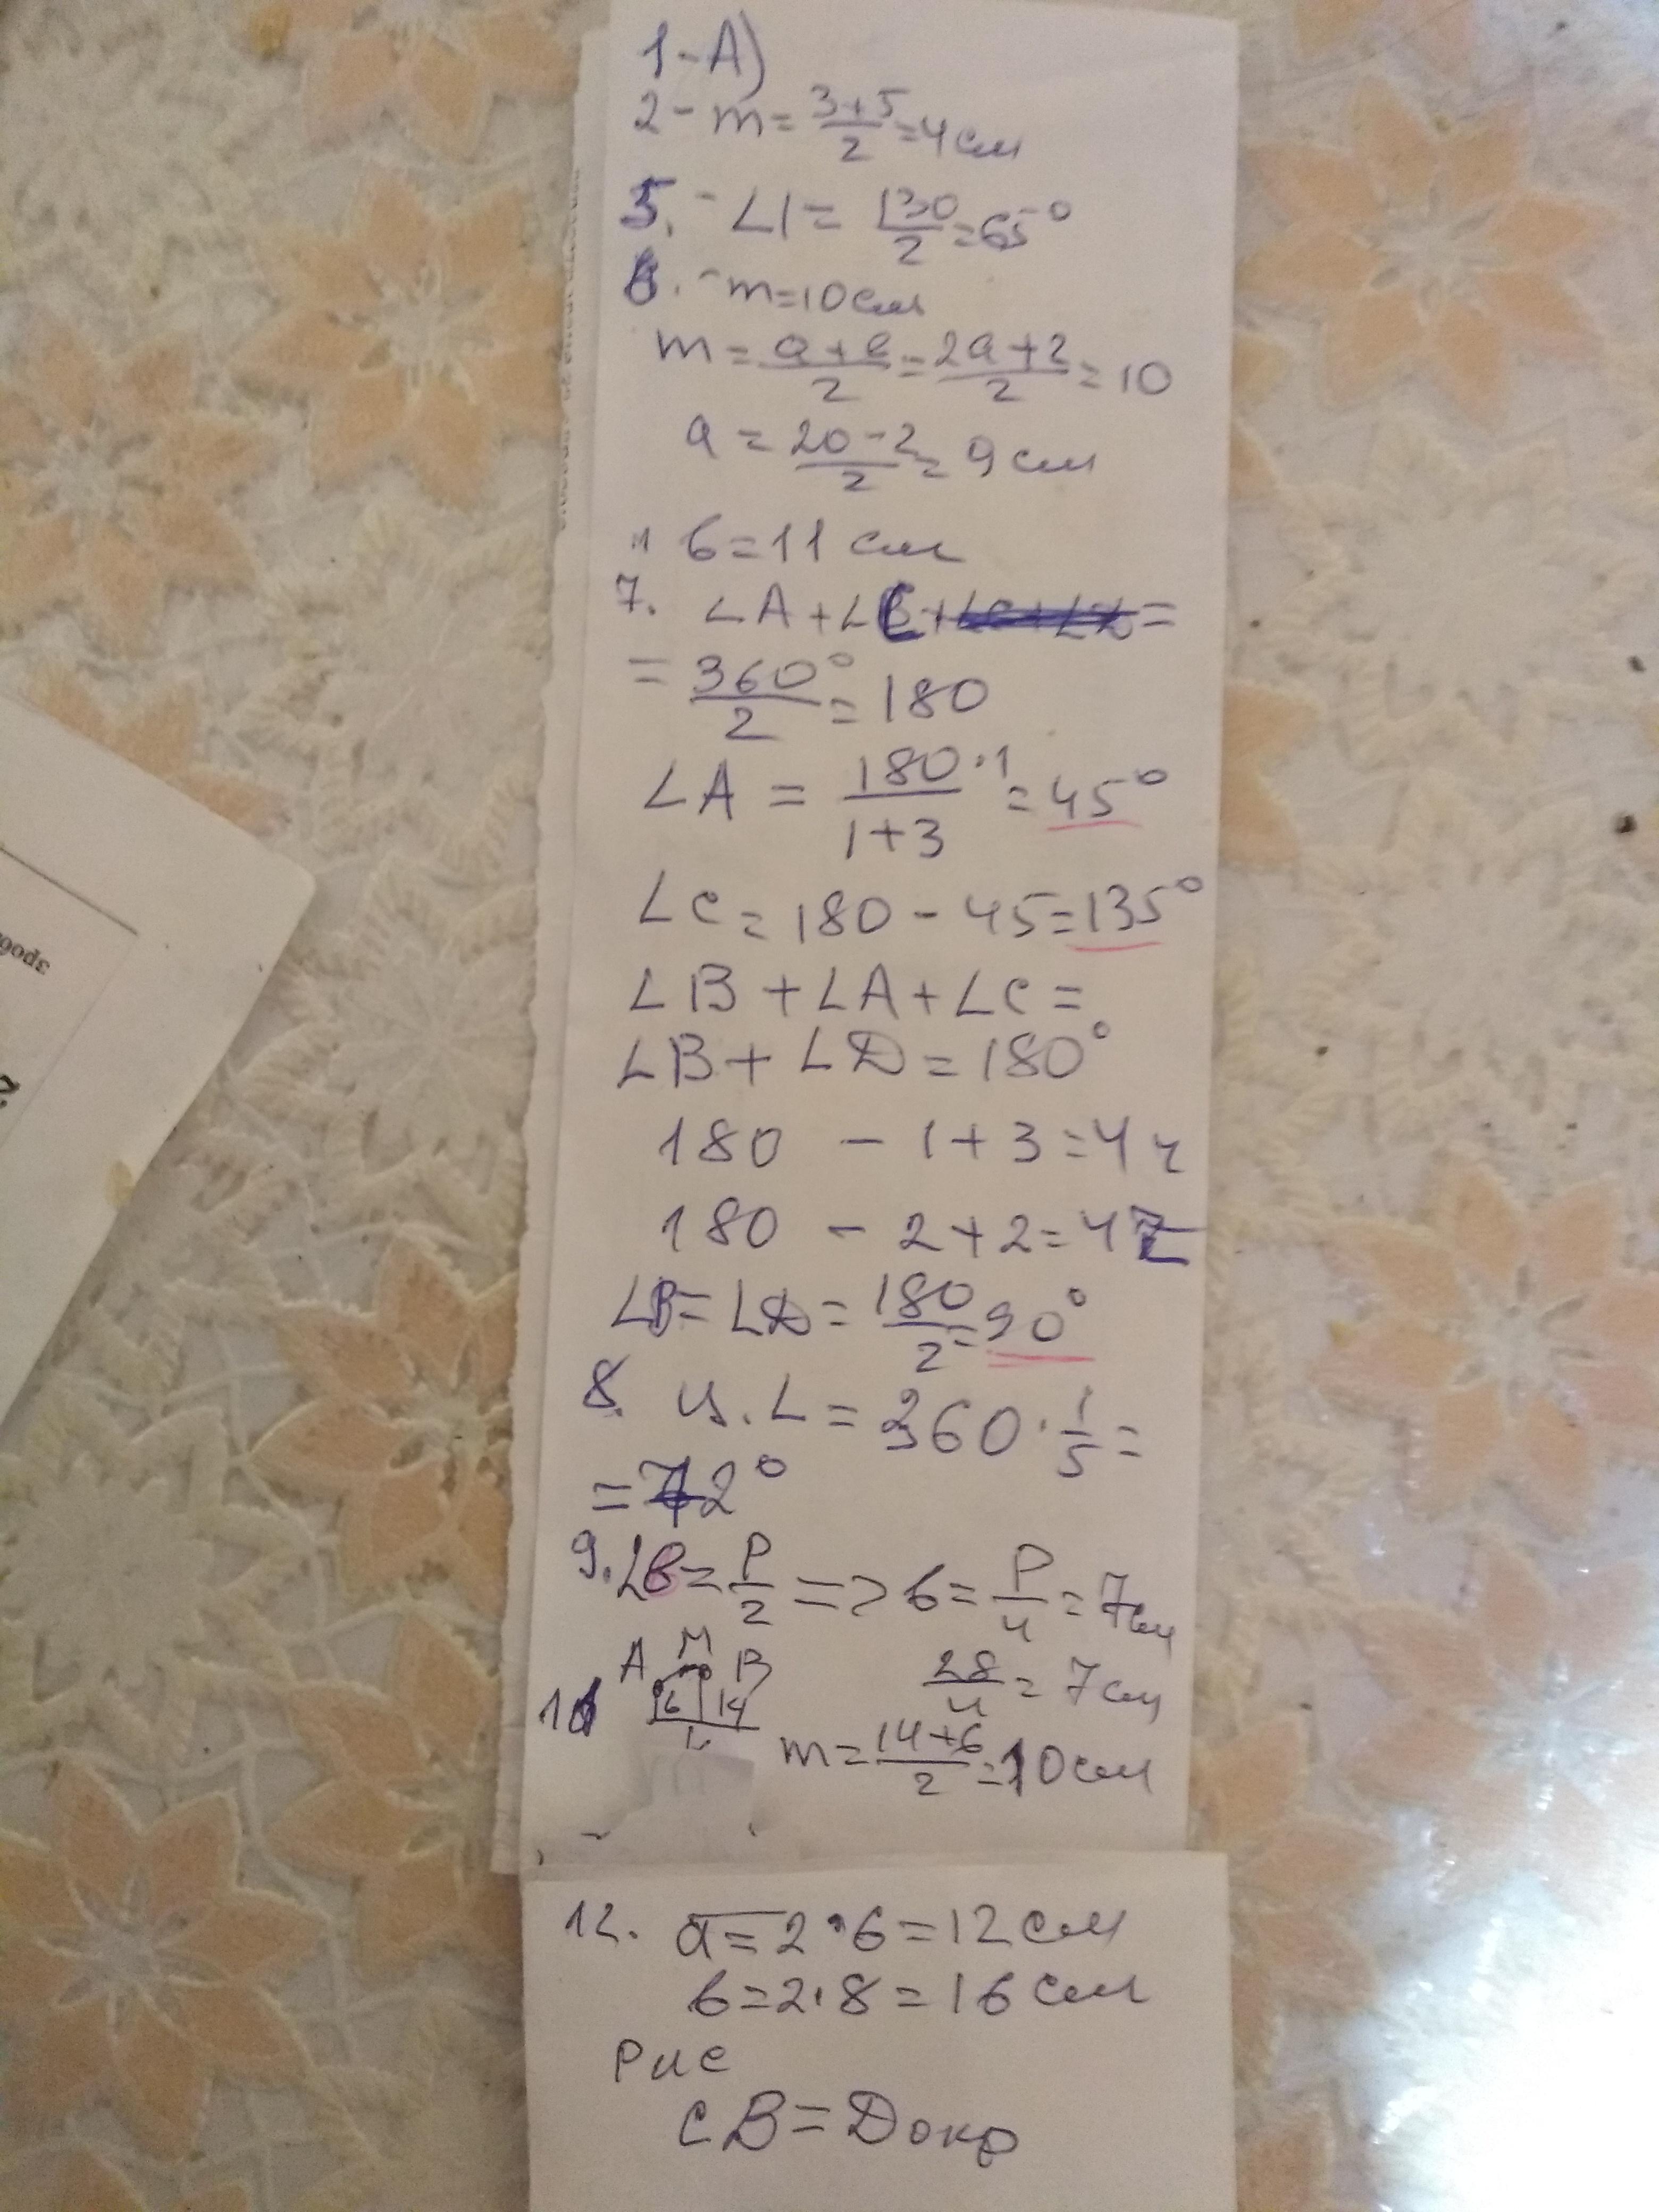 1-А)
2- m = 3+5/2 = 4 см
5. - ∠1 = 130/2 = 65°
6. - m = 10 см
m = a+в/2 = 2a+2/2 = 10
a = 20-2/2 = 9 см
б = 11 см
7. ∠A + ∠C =
= 360°/2 = 180
∠A = 180·1/1+3 = 45°
∠C = 180 - 45 = 135°
∠B + ∠A + ∠C =
∠B + ∠D = 180°
180 - 1+3 = 4ч
180 - 2+2 = 4
∠B = ∠D = 180/2 = 90°
8. ц. ∠ = 360 · 1/5 =
= 72°
9. = P/2 => б = P/4 = 7 см
28/4 = 7 см
A M B
6 14
m = 14+6/2 = 10 см
12. a = 2·6 = 12 см
б = 2·8 = 16 см
Рис
CB = Докр
goods